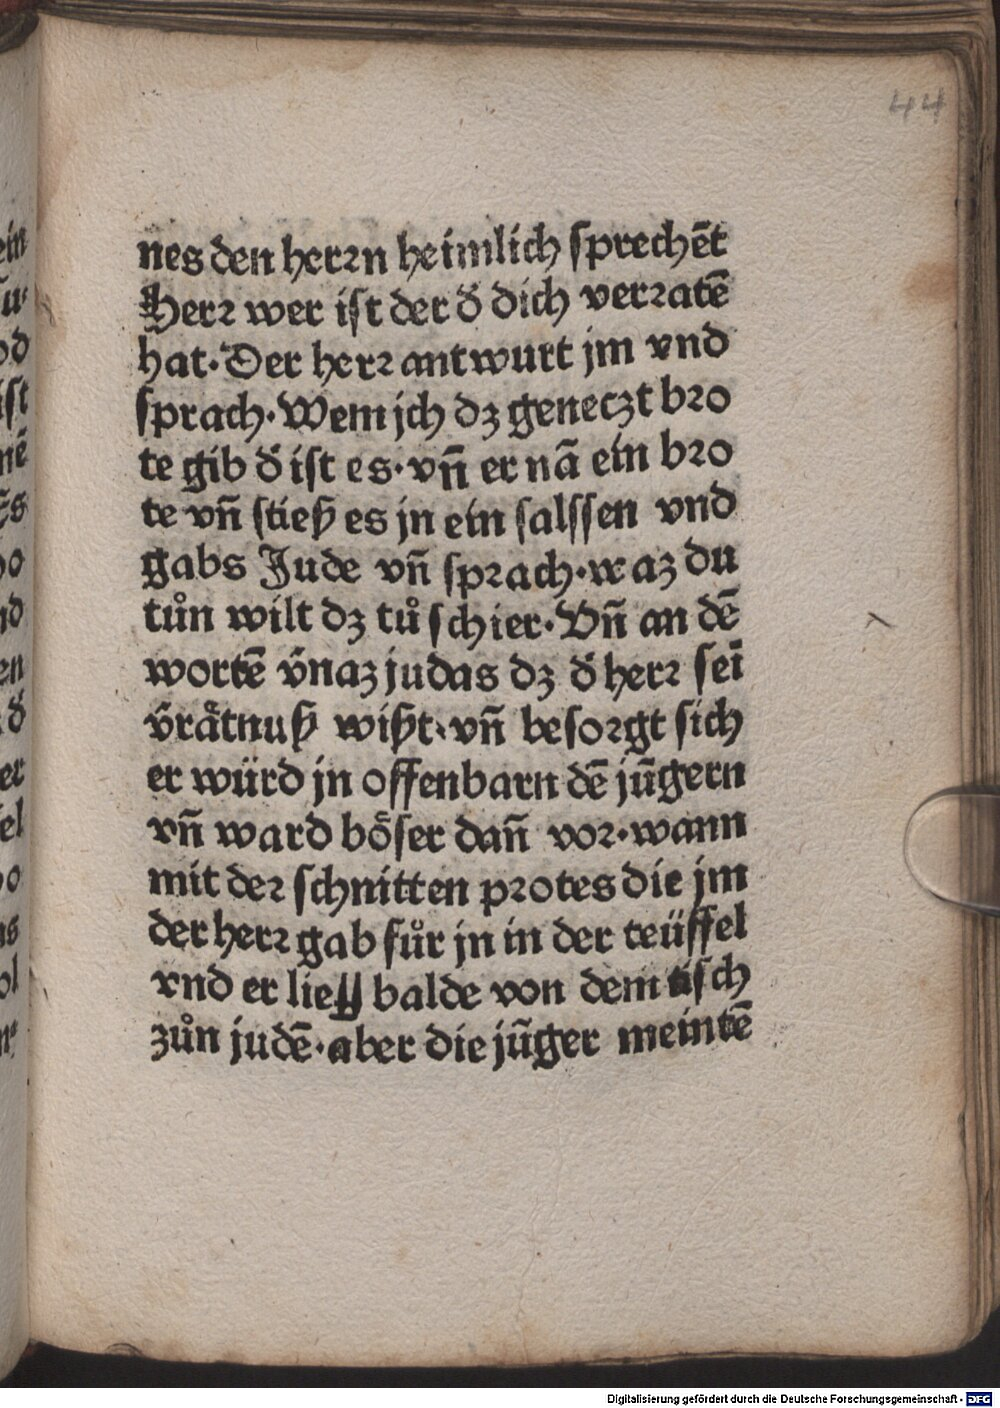 44
nes den herꝛn heimlich ſprechēt
Herꝛ wer iſt der d̕ dich verꝛatē
hat·Der herꝛ antwurt jm vnd
ſprach·Wem jch dꝫ geneczt bꝛo
te gib d̕ iſt es·vn̄ er nā ein bꝛo
te vn̄ ſtieß es jn ein ſalſſen vnd
gabs Jude vn̄ ſpꝛach·waꝫ du
tůn wilt dꝫ tů ſchier·Vn̄ an dē
wortē v̕naꝫ judas dꝫ d̕ herꝛ ſei
v̕rätnuß wißt·vn̄ beſoꝛgt ſich
er würd jn offenbarn dē jūgern
vn̄ ward böſer dan̄ voꝛ·wann
mit deꝛ ſchnitten pꝛotes die jm
der herꝛ gab fůr jn in der teüffel
vnd er lieſſ balde von dem tiſch
zůn judē·aber die jūger meintē
Digitalisierung gefördert durch die Deutsche Forschungsgemeinschaft - DFG